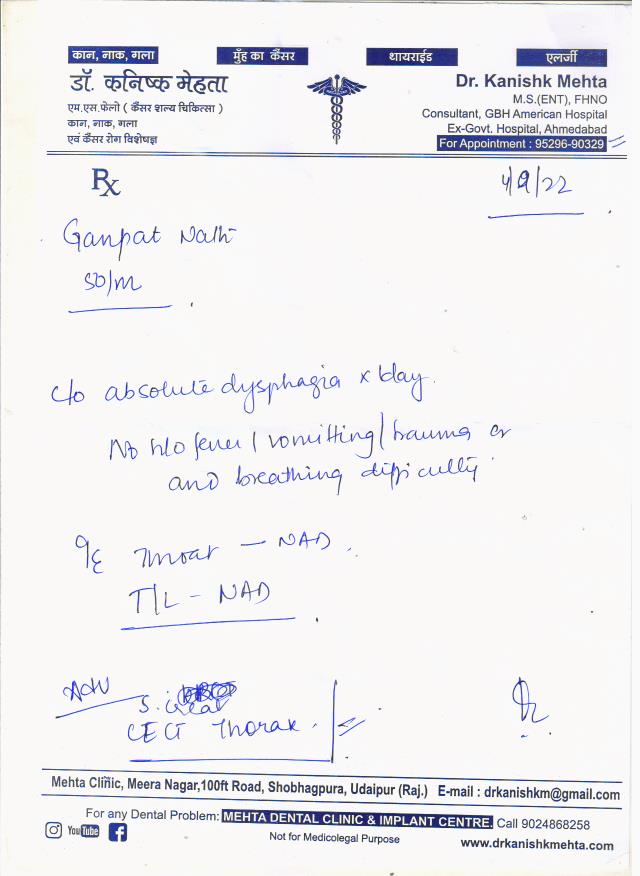 कान, नाक, गला
मुँह का कैंसर
थायराईड
एलर्जी
डॉ. कनिष्क मेहता
एम.एस.फेलो ( कैंसर शल्य चिकित्सा )
कान, नाक, गला
एवं कैंसर रोग विशेषज्ञ
Dr. Kanishk Mehta
M.S.(ENT), FHNO
Consultant, GBH American Hospital
Ex-Govt. Hospital, Ahmedabad
For Appointment : 95296-90329
Rx
/22
Ganpat Nath
50/m
c/o absolute dysphagia x 1day.
No h/o fever / vomitting / trauma or
and breathing difficulty
O/E Throat – NAD.
T/L – NAD
Adv
S. creat
CECT Thorax.
Mehta Clinic, Meera Nagar,100ft Road, Shobhagpura, Udaipur (Raj.) E-mail : drkanishkm@gmail.com
For any Dental Problem: MEHTA DENTAL CLINIC & IMPLANT CENTRE, Call 9024868258
YouTube
Not for Medicolegal Purpose
www.drkanishkmehta.com